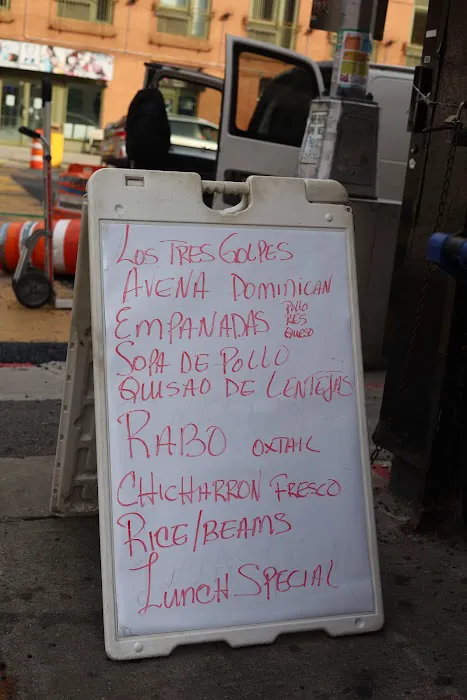 Los Tres Golpes
AVENA Dominican
EMPANADAS
Pollo
RES
QUESO
SOPA DE POLLO
QUISAO DE LENTEJAS
RABO OXTAIL
CHICHARRON FRESCO
RICE/BEAMS
Lunch SPECIAL